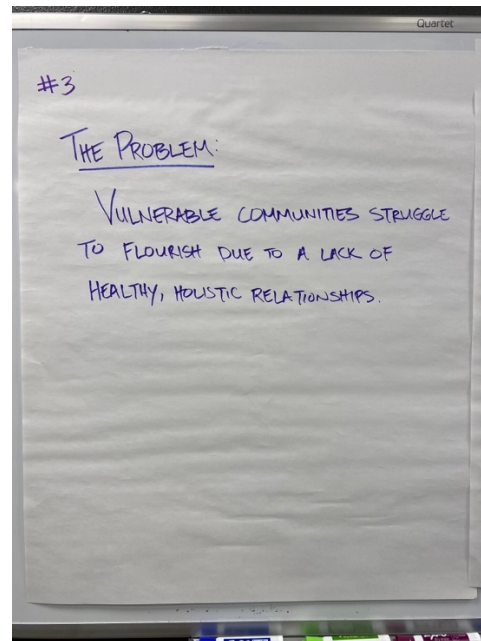 Quartet
#3
THE PROBLEM:
VULNERABLE COMMUNITIES STRUGGLE
TO FLOURISH DUE TO A LACK OF
HEALTHY, HOLISTIC RELATIONSHIPS.